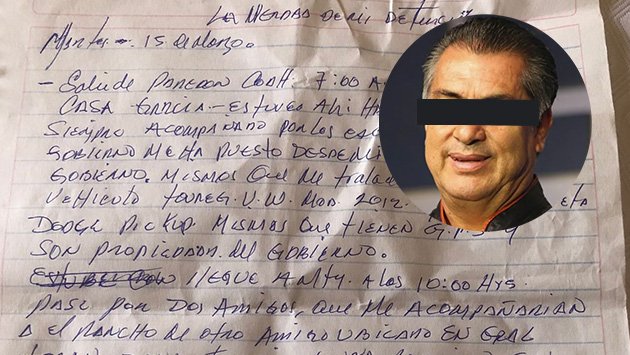 LA VERDAD DE MI DETENCIÓN
Martes - 15 de Marzo.
- Salí de PAREDON COAH. 7:00 A
CASA GARCIA - ESTUVE AHI HA
SIEMPRE ACOMPAÑADO POR LOS ESC
GOBIERNO ME HA PUESTO DESDE MI
GOBIERNO. MISMOS QUE ME TRASLADA
VEHICULO TOUREG V.W. MOD. 2012
DODGE PICKUP. MISMOS QUE TIENEN G.P.S Y
SON PROPIEDAD DEL GOBIERNO.
LLEGUE A MTY. A LAS 10:00 HRS
PASE POR DOS AMIGOS, QUE ME ACOMPAÑARIAN
A EL RANCHO DE OTRO AMIGO UBICADO EN GRAL